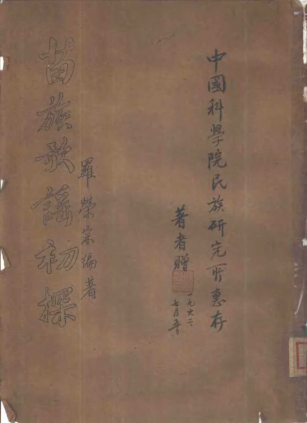 中國科學院民族研究所惠存
著者贈
一九六二
七月
羅榮宗編著
苗族歌謠初探